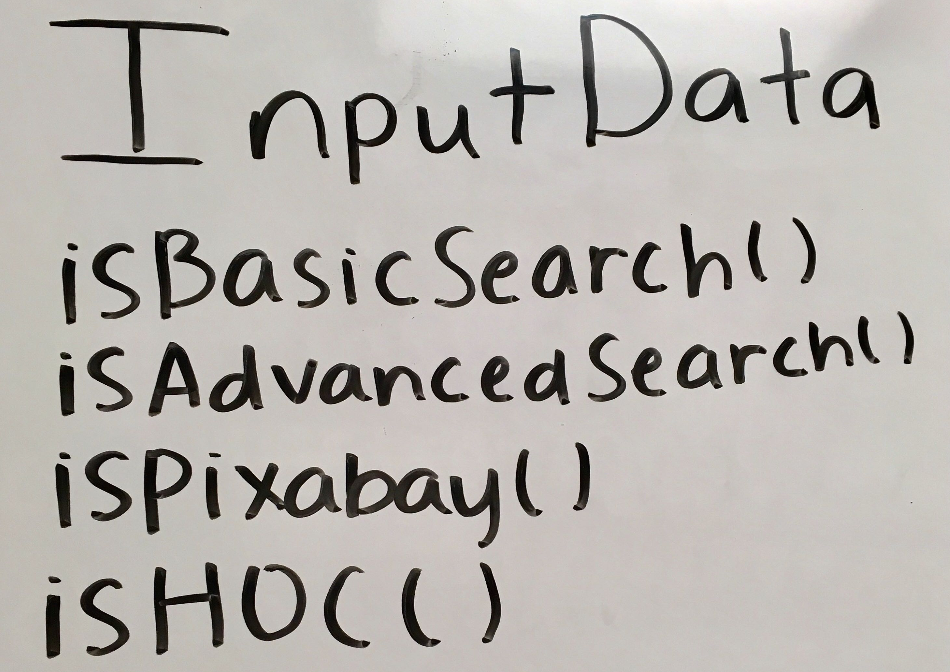 InputData
isBasicSearch()
isAdvancedSearch()
isPixabay()
isHOC()